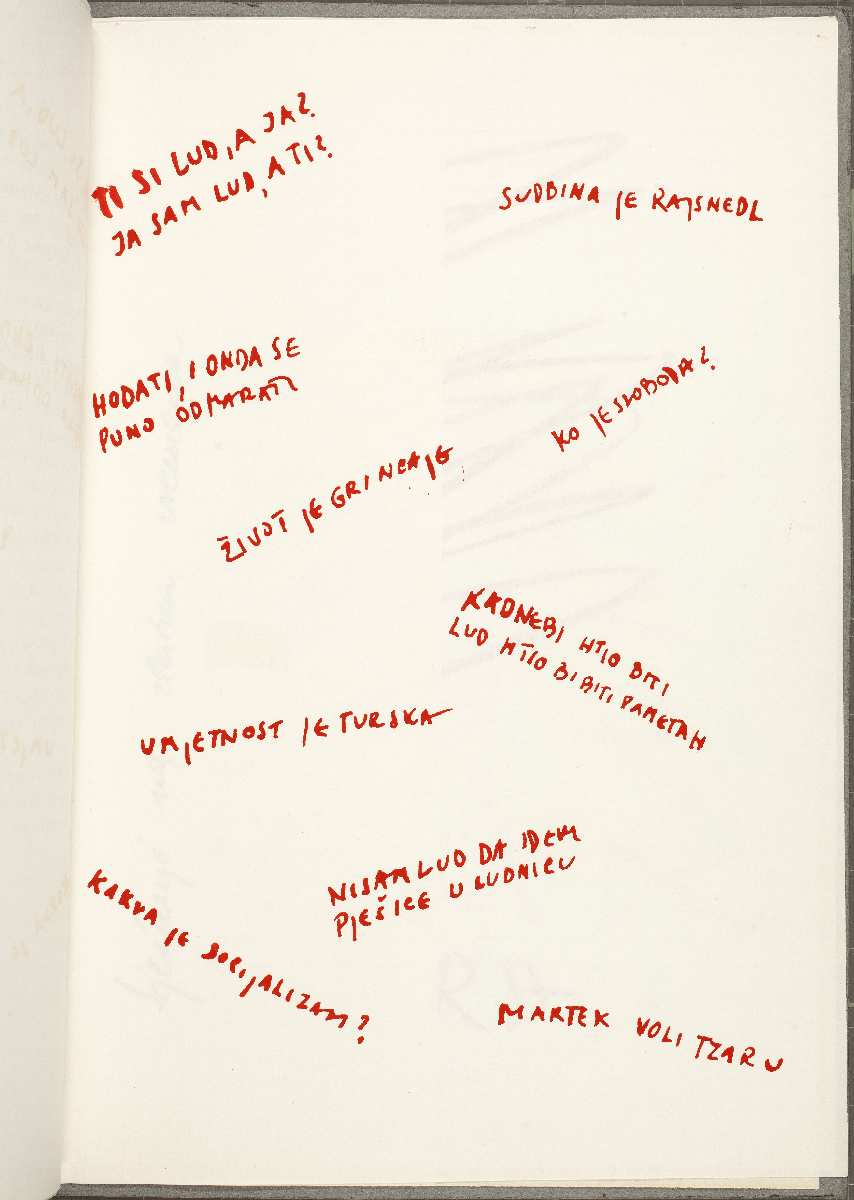 TI SI LUD, A JA?
JA SAM LUD, A TI?
SUDBINA JE RAJSNEDL
HODATI, I ONDA SE
PUNO ODMARATI
KO JE SLOBODA?
ŽIVOT JE GRINCAJG
KADNEBI HTIO BITI
LUD HTIO BI BITI PAMETAN
UMJETNOST JE TURSKA
NISAM LUD DA IDEM
PJEŠICE U LUDNICU
KAKVA JE SOCIJALIZAM?
MARTEK VOLI TZARU